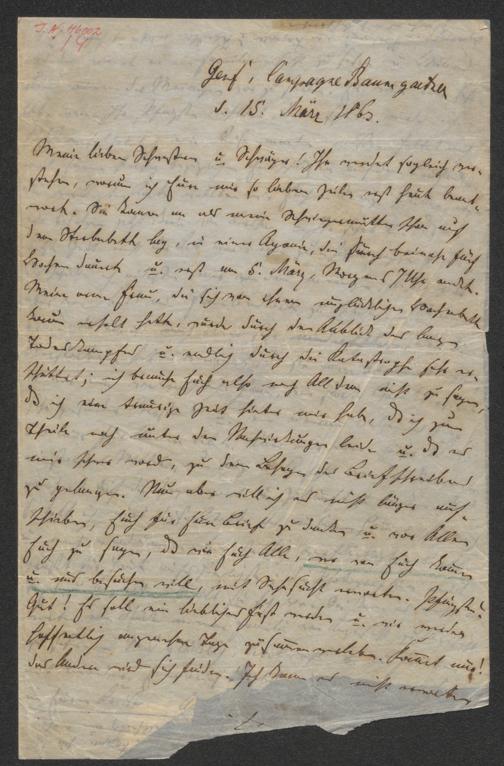 J. N. 76002
Genf, Campagne Baumgarten
d. 15. März 186
Meine lieben Schwestern u. Schwäger! Ihr werdet sogleich ver-
stehen, warum ich Eure mir so lieben Zeilen erst heute beant-
worte. Sie kamen an als meine Schwiegermutter schon auf
dem Sterbebett lag, in einer Agonie, die durch beinahe fünf
Wochen dauerte u. erst am 6. März, Morgens 7 Uhr endete.
Meine arme Frau, die sich von ihrem unglücklichen Wochenbette
kaum erholt hatte, wurde durch den Anblick des langen
Todeskampfes u. endlich durch die Katastrophe sehr er-
schüttert; ich brauche Euch also nach All dem nicht zu sagen,
daß ich eine traurige Zeit hinter mir habe, daß ich zum
Theile noch unter den Nachwirkungen leide u. daß es
mir schwer wird, zu dem Behagen des Briefschreibens
zu gelangen. Nun aber will ich es nicht länger auf-
schieben, Euch für Eure Briefe zu danken u. vor Allem
Euch zu sagen, daß wir Euch Alle, wer von Euch kommen
u. uns besuchen will, mit Sehnsucht erwarten. Pfingsten!
Gut! Es soll ein liebliches Fest werden u. wir werden
hoffentlich angenehme Tage zusammen verleben. Kommt nur!
Das Andere wird sich finden. Ich kann es nicht erwarten